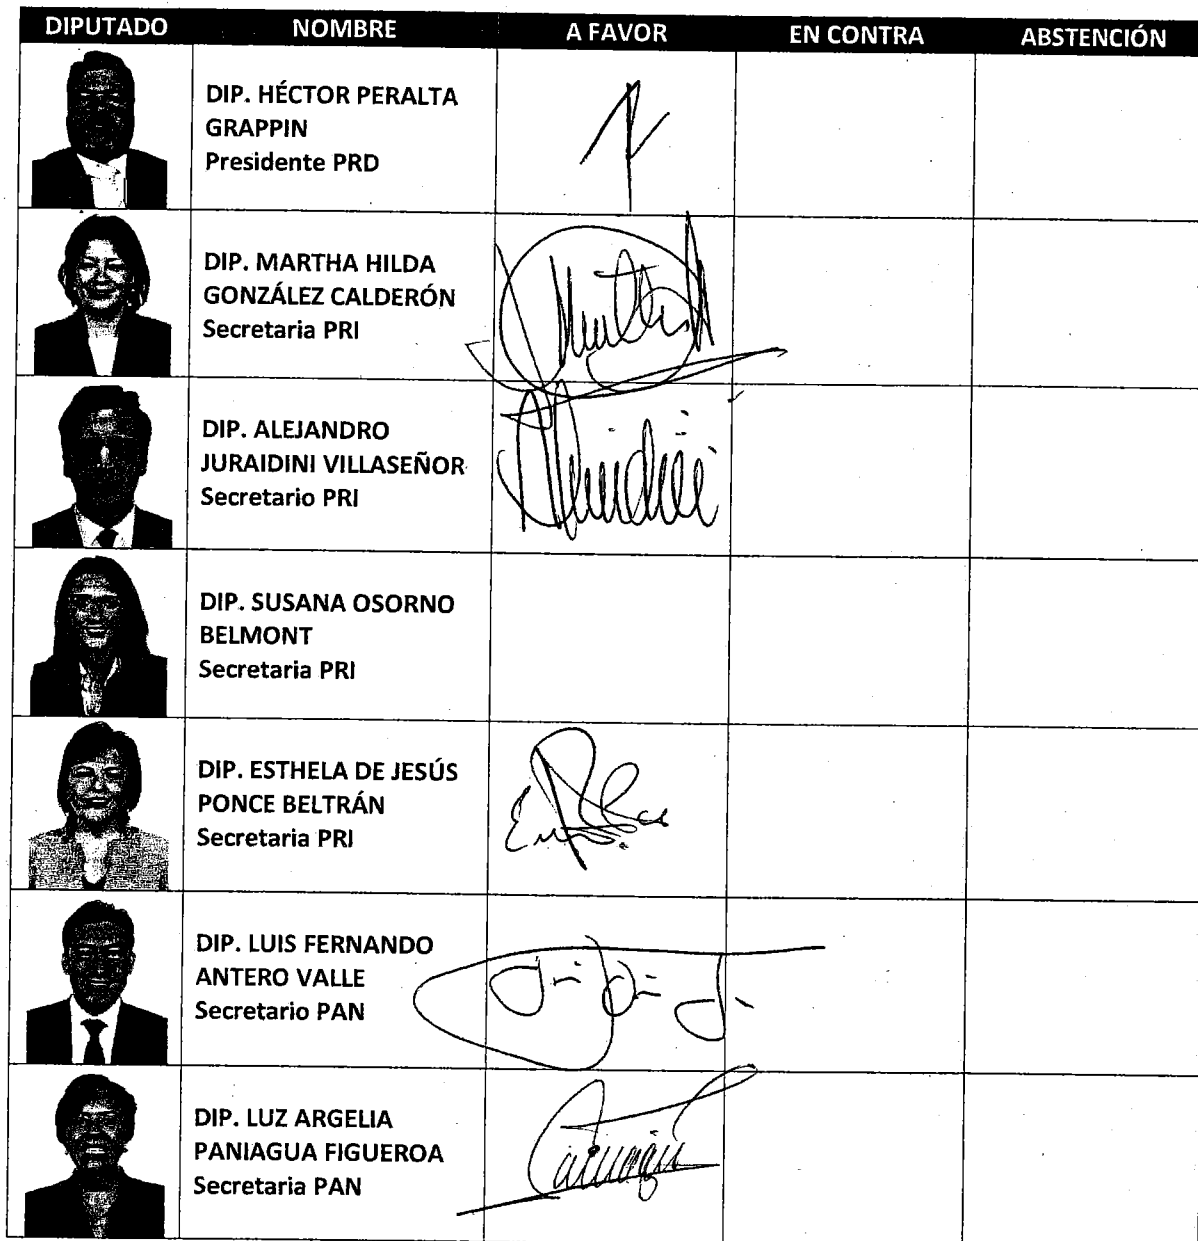 DIPUTADO NOMBRE A FAVOR EN CONTRA ABSTENCIÓN
DIP. HÉCTOR PERALTA
GRAPPIN
Presidente PRD
DIP. MARTHA HILDA
GONZÁLEZ CALDERÓN
Secretaria PRI
DIP. ALEJANDRO
JURAIDINI VILLASEÑOR
Secretario PRI
DIP. SUSANA OSORNO
BELMONT
Secretaria PRI
DIP. ESTHELA DE JESÚS
PONCE BELTRÁN
Secretaria PRI
DIP. LUIS FERNANDO
ANTERO VALLE
Secretario PAN
DIP. LUZ ARGELIA
PANIAGUA FIGUEROA
Secretaria PAN